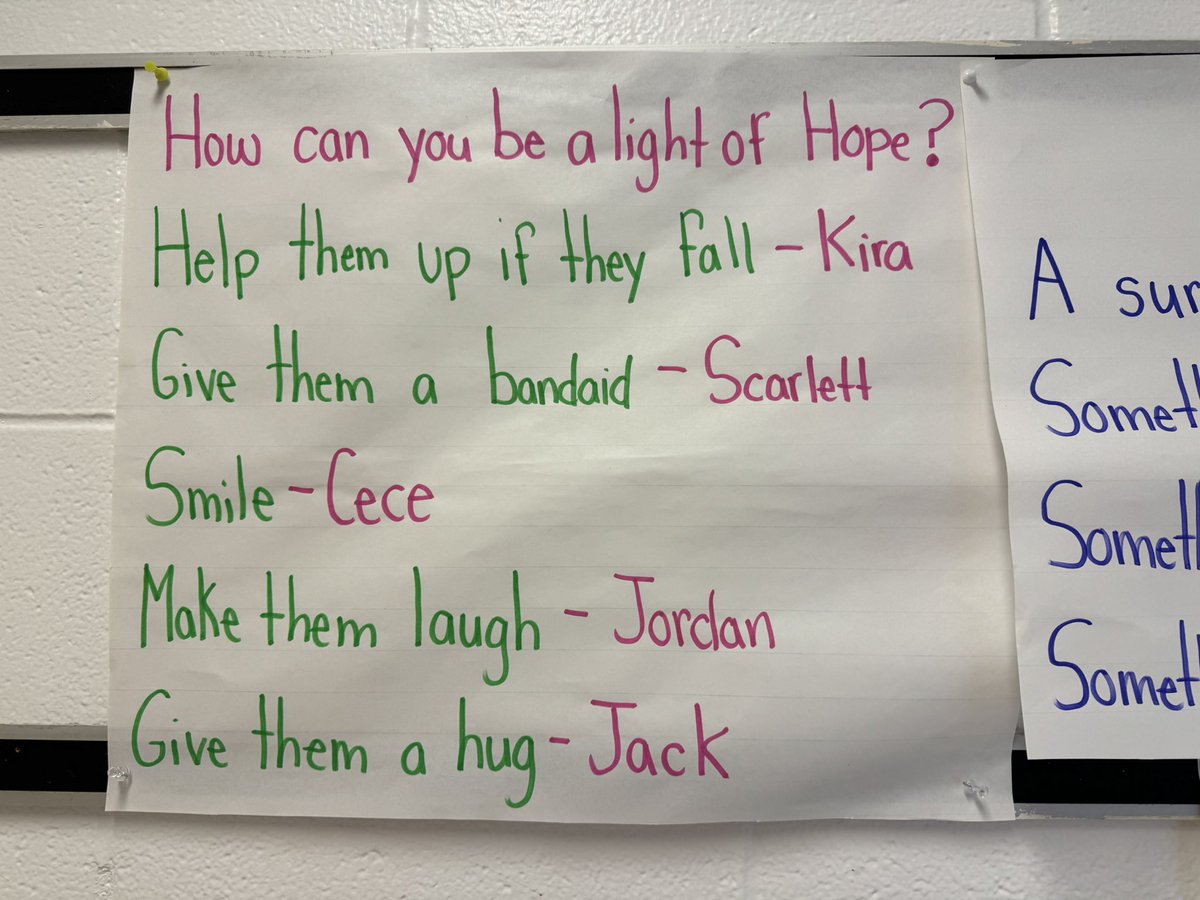 How can you be a light of Hope?
Help them up if they fall - Kira
Give them a bandaid - Scarlett
Smile - Cece
Make them laugh - Jordan
Give them a hug - Jack
A